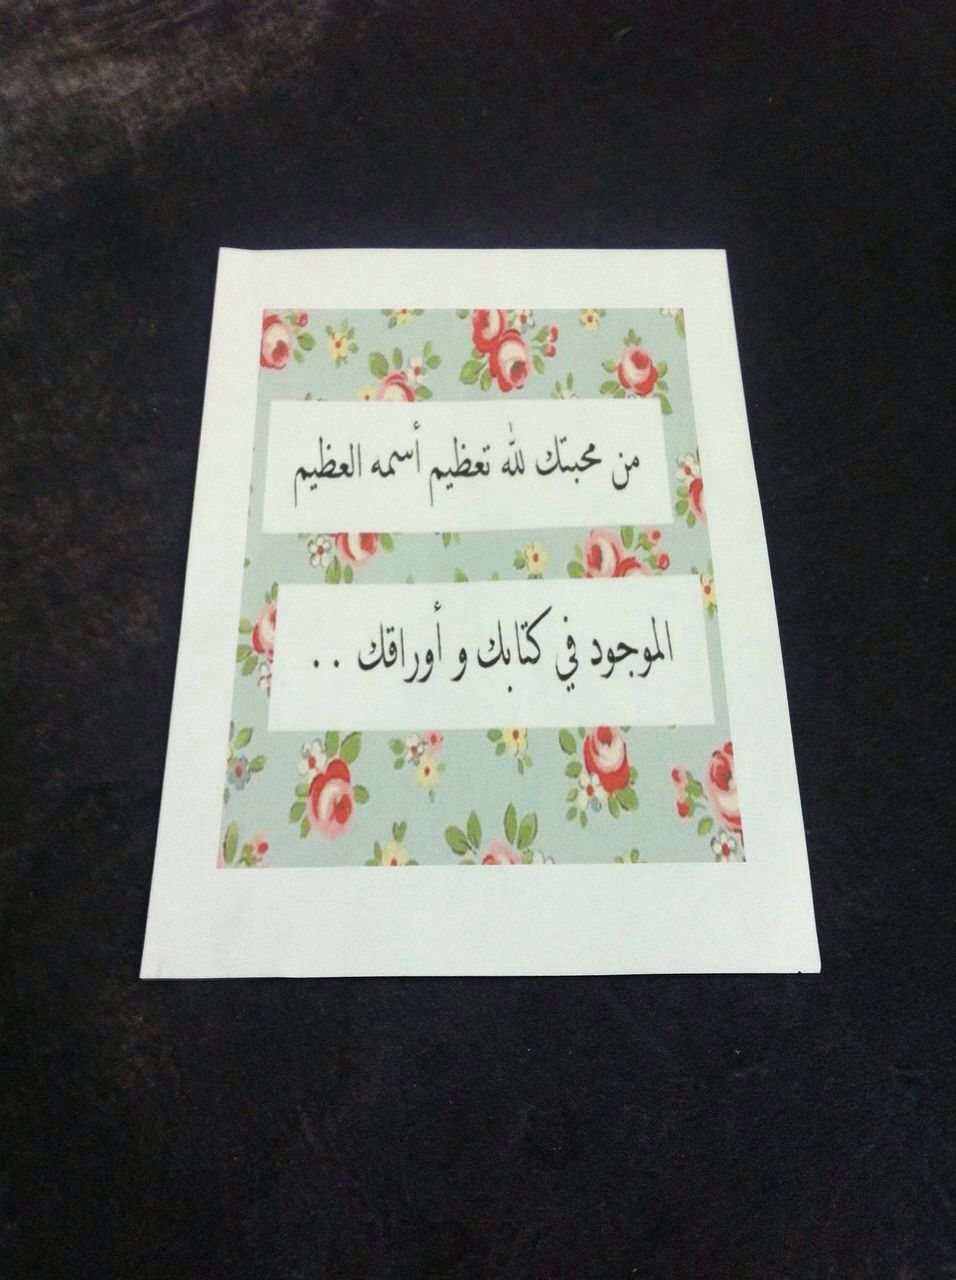 من محبتك لله تعظيم أسمه العظيم
الموجود في كتابك و أوراقك . .